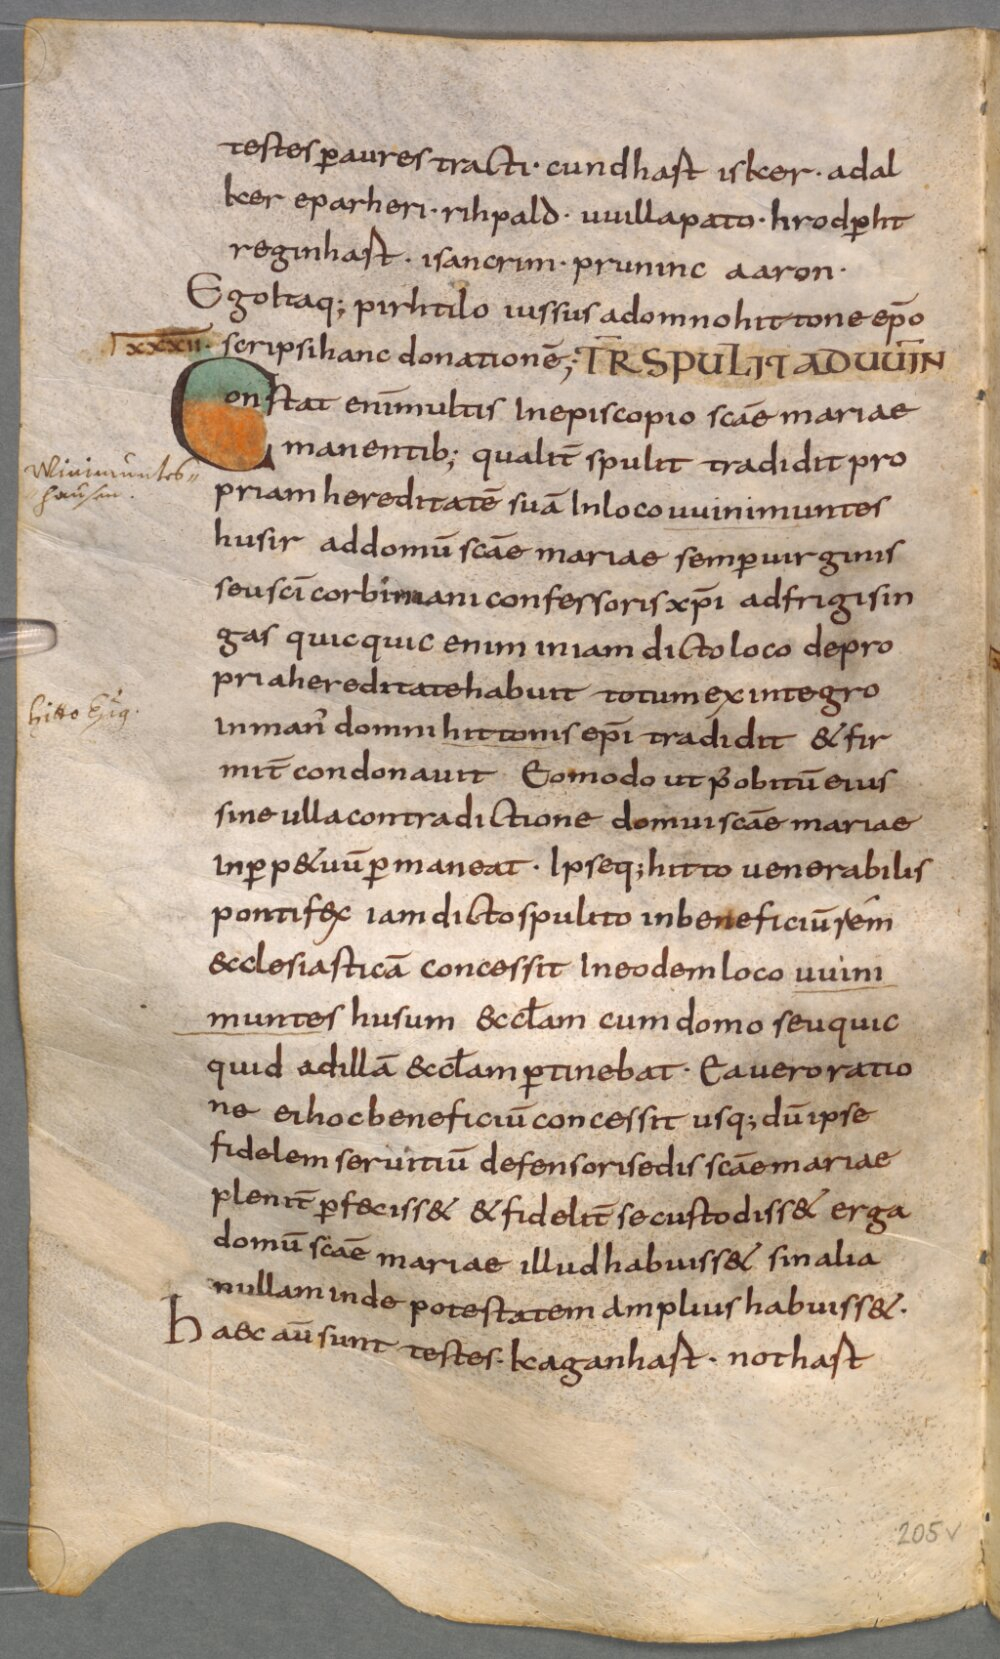 testes p̄ aures tracti · cundhast iskcer · adal
kcer eparheri · rihpald · uuillapato · hrodp̄ht
reginhast · isancrim · pruninc aaron ·
Ego tiaq; pirhtilo iussus a domno hittone ep̄o
scripsi hanc donationē; TR̄ SPULIT AD UUIN
xxxii ·
Constat enī multis In episcopio scāe mariae
manentib; qualit̄ spulit tradidit pro
priam hereditatē suā In loco uuinimuntes
Winimuntes
hausen.
husir ad domū scāe mariae semp̄ uirginis
seu sc̄i corbiniani confessoris xp̄i ad frigisin
gas quicquic enim in iam dicto loco de pro
pria hereditate habuit totum ex integro
hitto Ep̄g.
In man̄ domni hittonis ep̄i tradidit & fir
mit̄ condonauit Eo modo ut p̄ obitū eius
sine ulla contradictione domui scāe mariae
In p̄p&uū p̄maneat · Ipseq; hitto uenerabilis
pontifex iam dicto spulito in beneficiū rēm
ecclesiasticā concessit In eodem loco uuini
muntes husum eccl̄am cum domo seu quic
quid ad illā eccl̄am p̄tinebat · Ea uero ratio
ne ei hoc beneficiū concessit usq; dū ipse
fidelem seruitiū defensori sedis scāe mariae
plenit̄ p̄feciss& & fidelit̄ se custodiss& erga
domū scāe mariae illud habuiss& sin alia
nullam inde potestatem amplius habuiss& ·
haec aū sunt testes · kcaganhast · nothast
205v